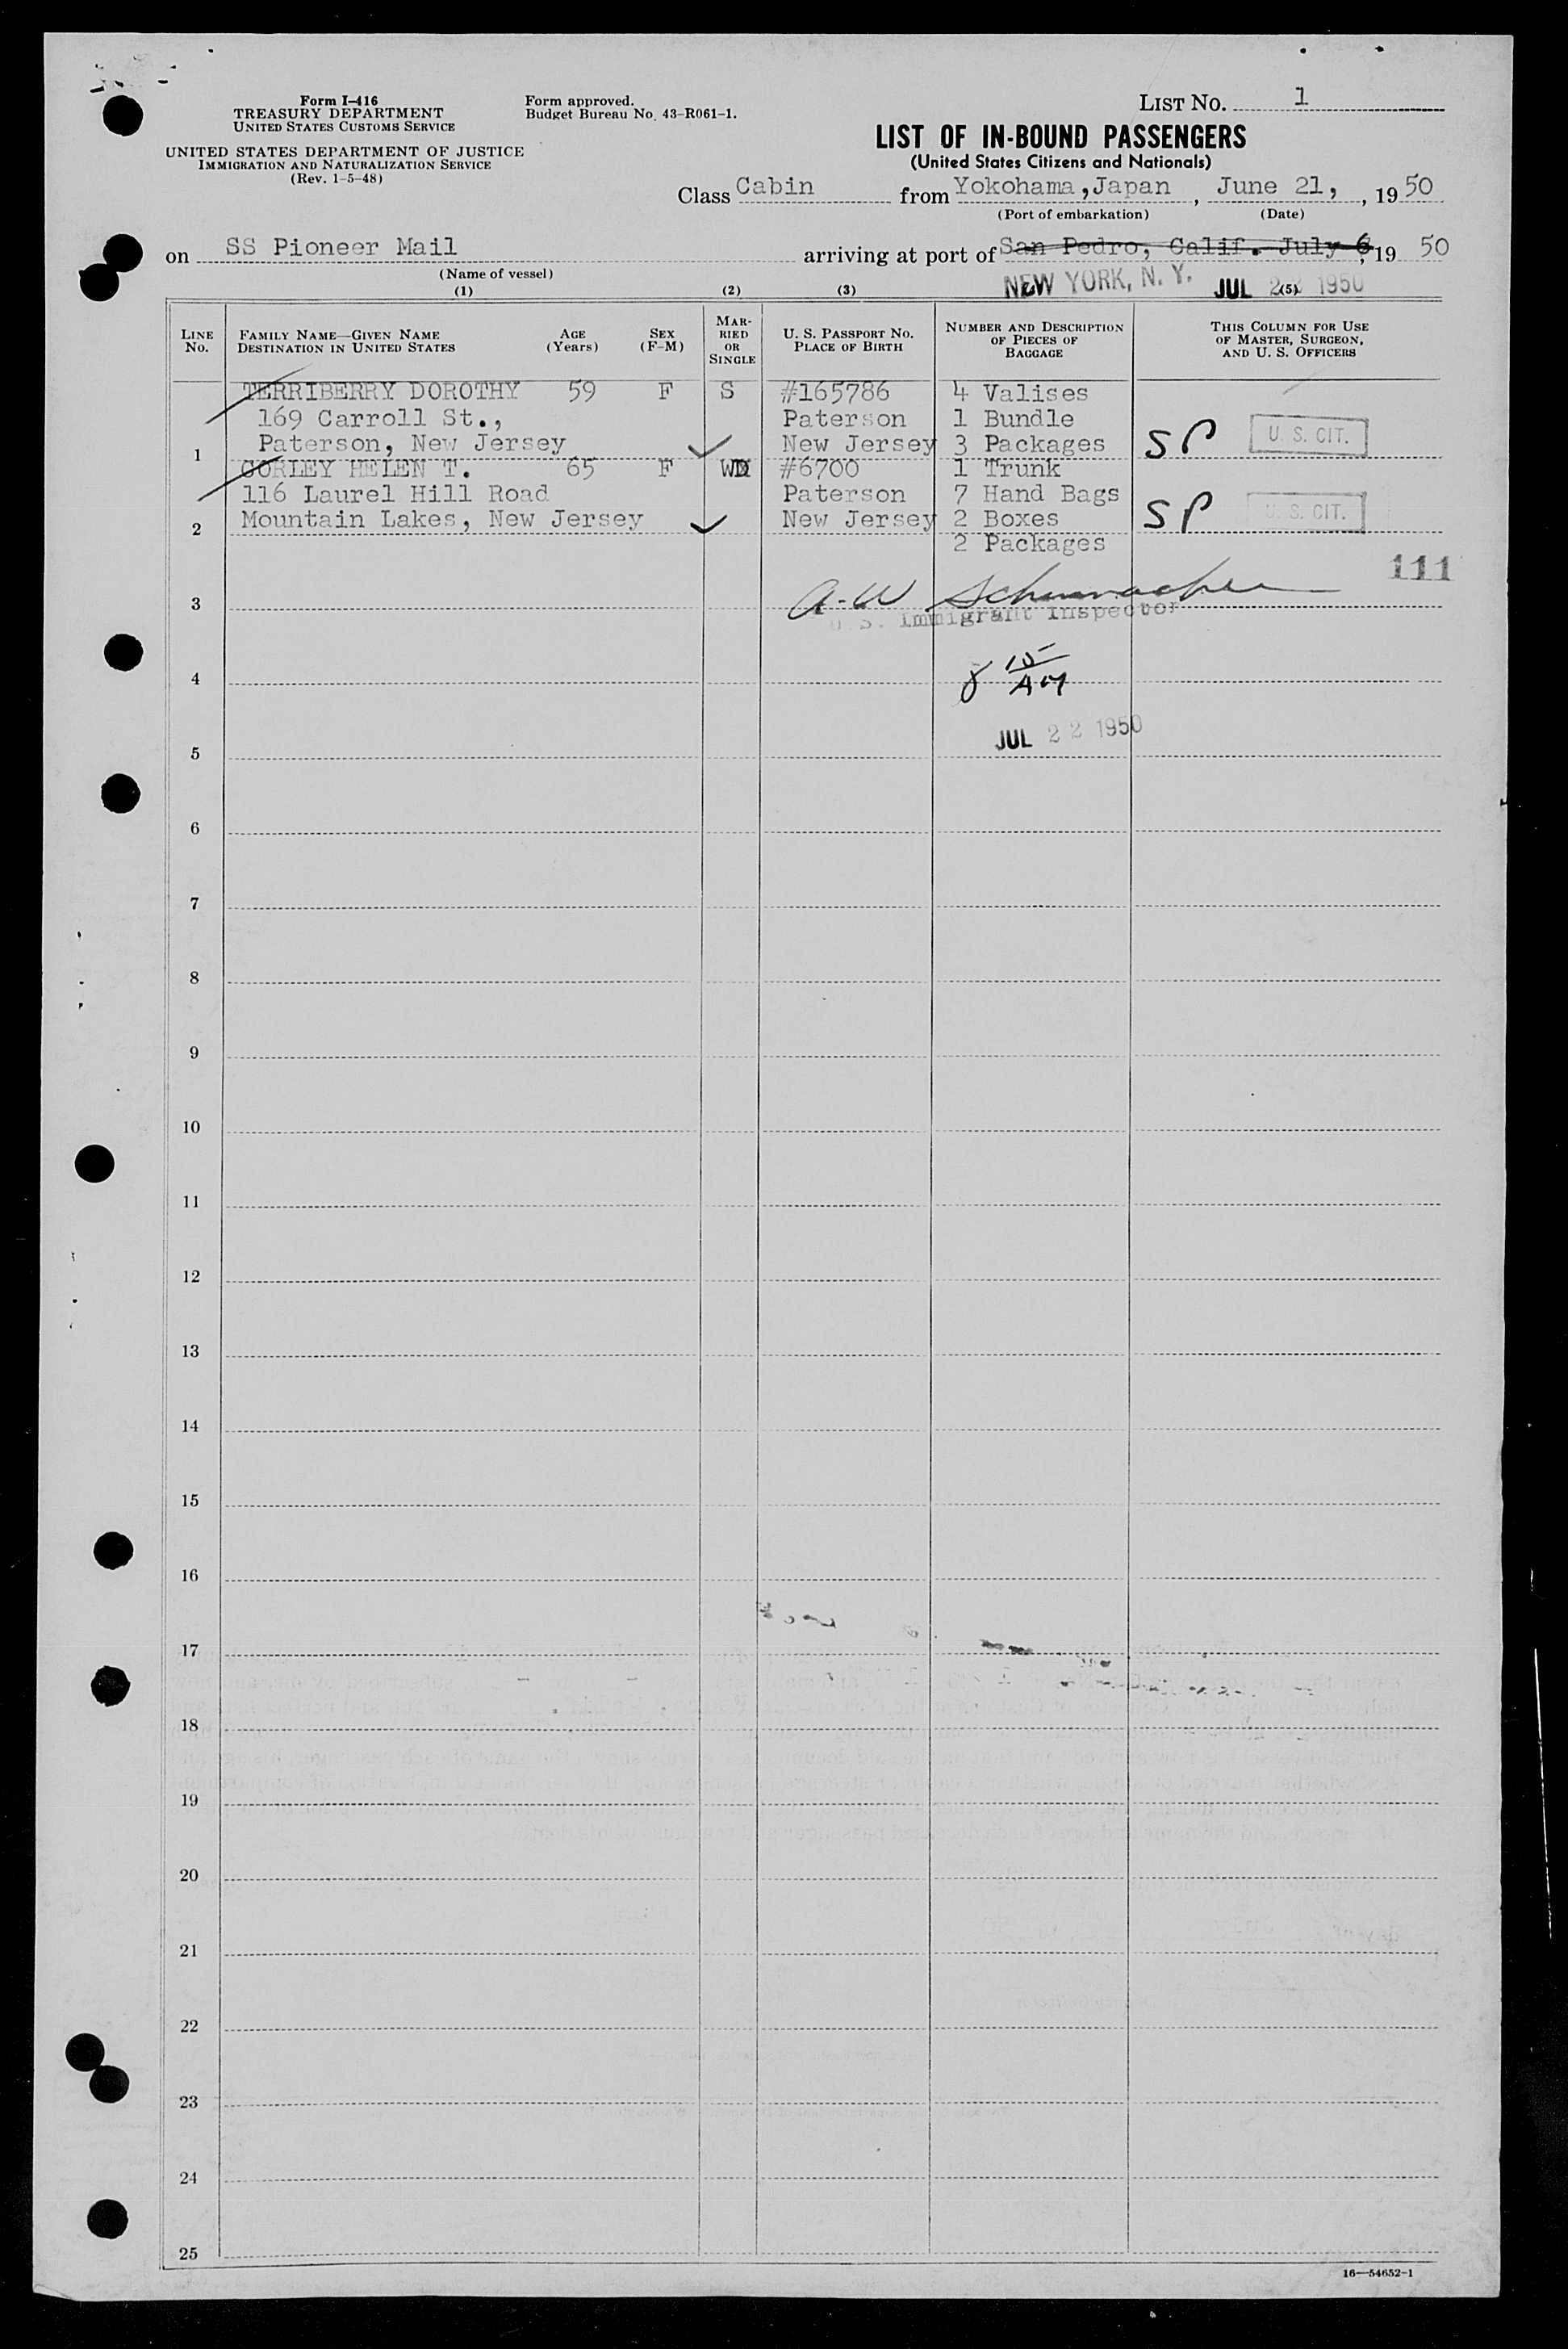 Form I-416
TREASURY DEPARTMENT
UNITED STATES CUSTOMS SERVICE
UNITED STATES DEPARTMENT OF JUSTICE
IMMIGRATION AND NATURALIZATION SERVICE
(Rev. 1-5-48)
Form approved.
Budget Bureau No. 43-R061-1.
LIST NO. 1
LIST OF IN-BOUND PASSENGERS
(United States Citizens and Nationals)
Class Cabin from Yokohama, Japan, June 21, , 19 50
(Port of embarkation) (Date)
on SS Pioneer Mail arriving at port of San Pedro, Calif. July 6, 19 50
(Name of vessel)
NEW YORK, N. Y. JUL 22 1950
(1) (2) (3) (5)
LINE NO. FAMILY NAME—GIVEN NAME DESTINATION IN UNITED STATES AGE (Years) SEX (F-M) MARRIED OR SINGLE U. S. PASSPORT NO. PLACE OF BIRTH NUMBER AND DESCRIPTION OF PIECES OF BAGGAGE THIS COLUMN FOR USE OF MASTER, SURGEON, AND U. S. OFFICERS
TERRIBERRY DOROTHY 59 F S #165786 4 Valises
169 Carroll St., Paterson 1 Bundle
1 Paterson, New Jersey New Jersey 3 Packages SP U. S. CIT.
CORLEY HELEN T. 65 F WD #6700 1 Trunk
116 Laurel Hill Road Paterson 7 Hand Bags
2 Mountain Lakes, New Jersey New Jersey 2 Boxes SP U. S. CIT.
2 Packages
111
3 A-W Schumacher
U. S. Immigrant Inspector
4 8 15 AM
5 JUL 22 1950
6
7
8
9
10
11
12
13
14
15
16
17
18
19
20
21
22
23
24
25
16—54652-1